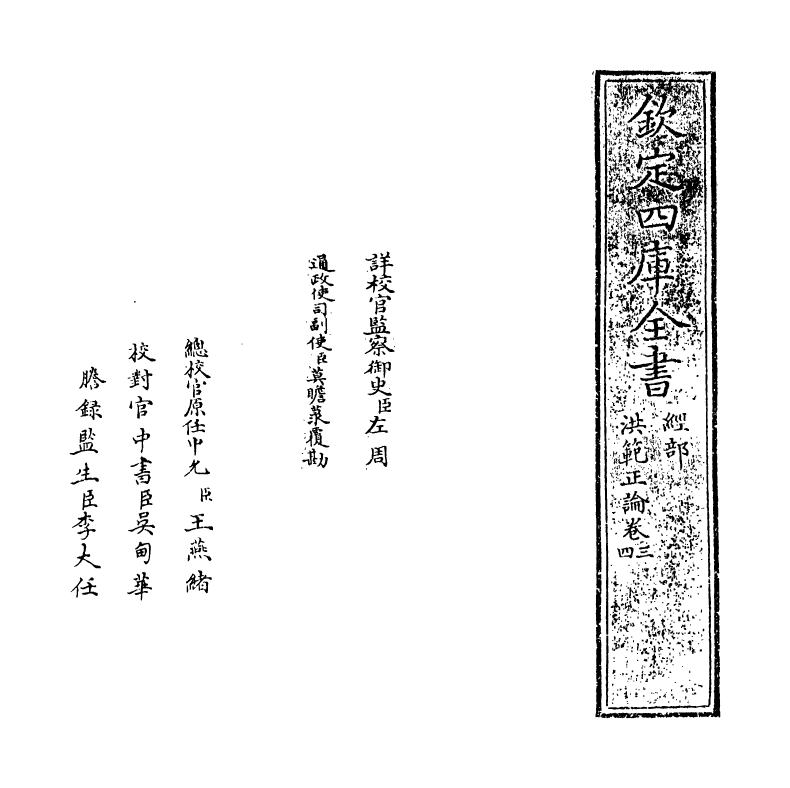 欽定四庫全書
經部
洪範正論卷三四
詳校官監察御史臣左周
通政使司副使臣莫瞻菉覆勘
總校官原任中允臣王燕緒
校對官中書臣吳甸華
謄錄監生臣李大任